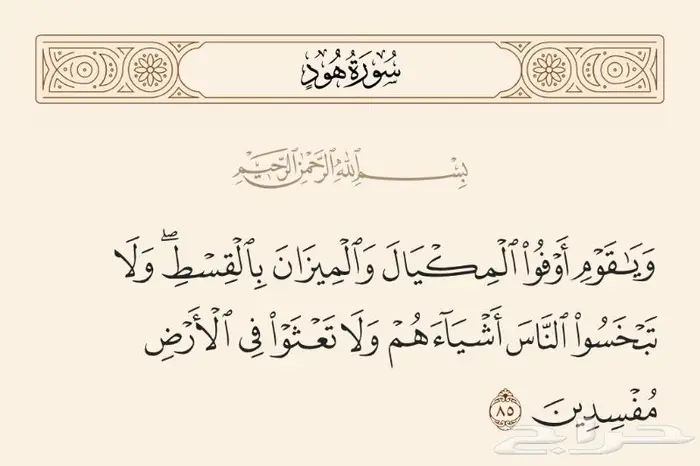 سُورَةُ هُودٍ
بِسْمِ ٱللَّهِ ٱلرَّحْمَٰنِ ٱلرَّحِيمِ
وَيَٰقَوْمِ أَوْفُوا۟ ٱلْمِكْيَالَ وَٱلْمِيزَانَ بِٱلْقِسْطِ ۖ وَلَا
تَبْخَسُوا۟ ٱلنَّاسَ أَشْيَآءَهُمْ وَلَا تَعْثَوْا۟ فِى ٱلْأَرْضِ
مُفْسِدِينَ ٨٥
حراج